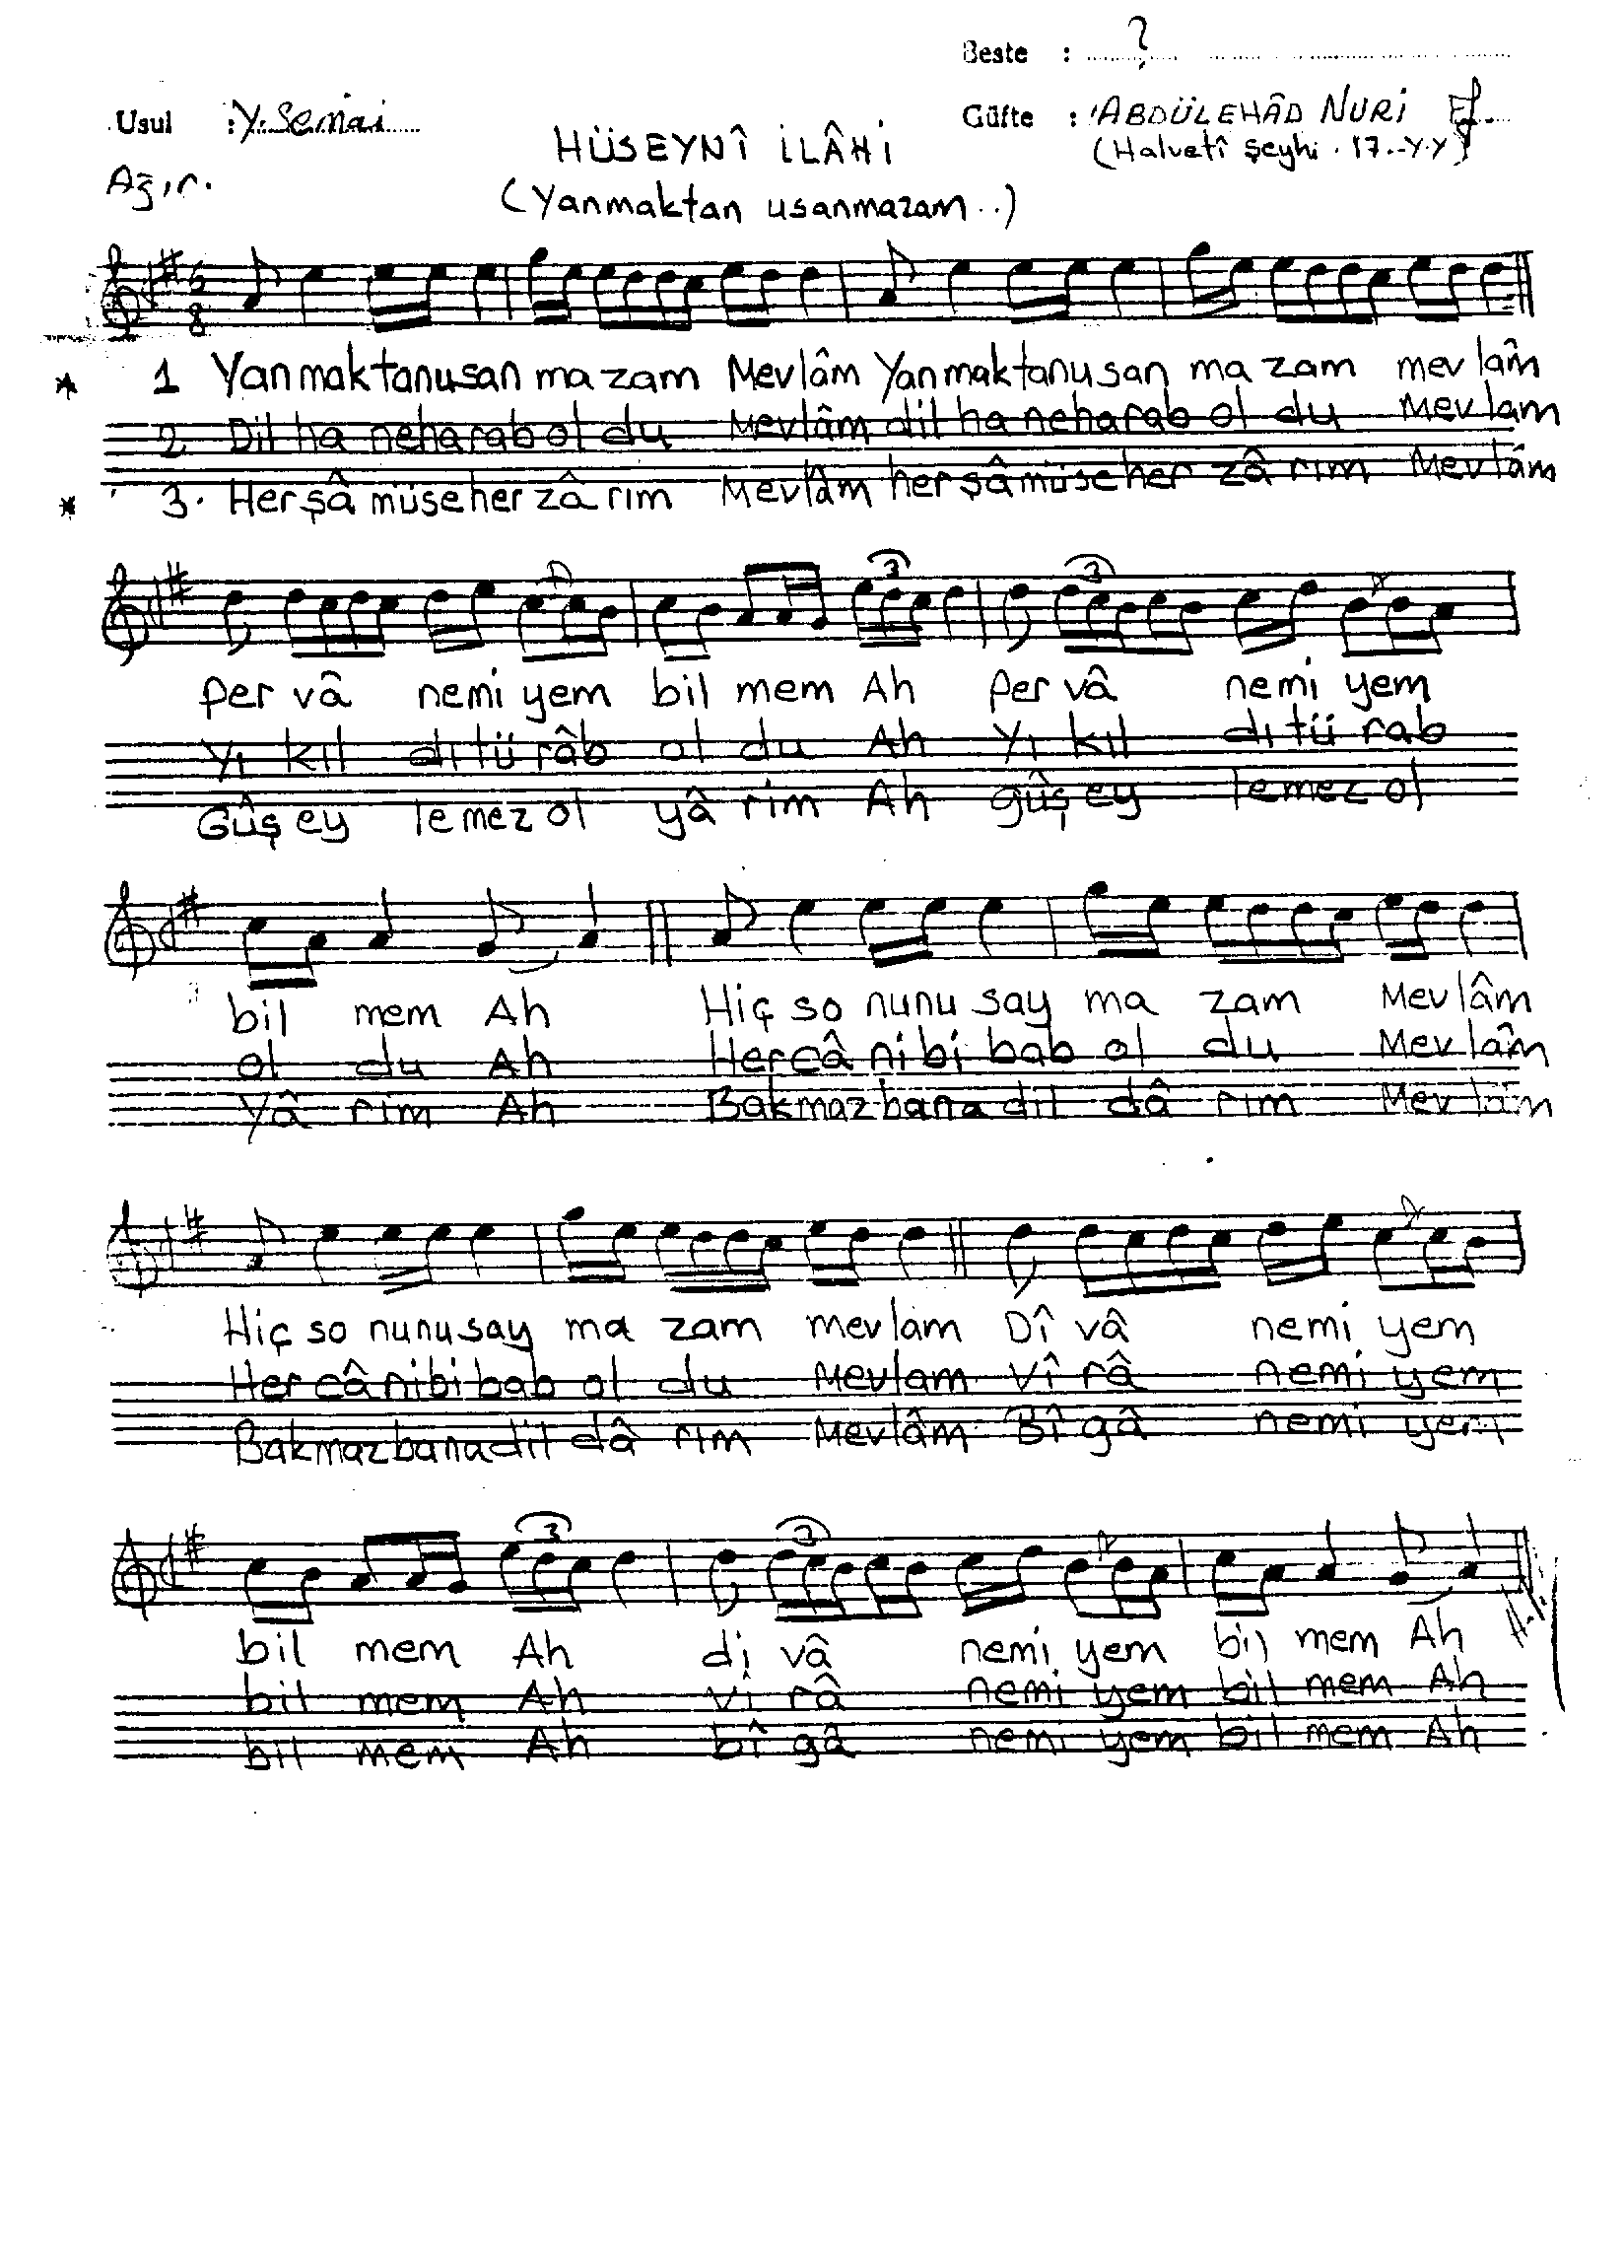 Beste : ?
Usul : Y. Semai
Güfte : ABDÜLEHÂD NURİ Ef.
HÜSEYNÎ İLÂHİ
(Halvetî şeyhi. 17. Y.Y)
Ağır.
(Yanmaktan usanmazam..)
1 Yanmaktanusan ma zam Mevlâm Yanmaktanusan ma zam mevlâm
2 Dil ha neharab ol du Mevlâm dil ha neharab ol du Mevlam
3. Herşâ müseher zâ rım Mevlâm her şâmüseher zâ rım Mevlâm
3 3
per vâ nemi yem bil mem Ah per vâ nemi yem
Yı kıl dı tü râb ol du Ah Yı kıl dı tü rab
Gûş ey lemez ol yâ rim Ah gûş ey lemez ol
bil mem Ah Hiç so nunu say ma zam Mevlâm
ol du Ah Hercâ ni bi bab ol du Mevlâm
Yâ rim Ah Bakmaz bana dil dâ rım Mevlâm
Hiç so nunusay ma zam mevlam Dî vâ nemi yem
Her câ nibi bab ol du Mevlam Vî râ nemi yem
Bakmazbanadil dâ rım Mevlâm Bî gâ nemi yem
3 3
bil mem Ah di vâ nemi yem bil mem Ah
bil mem Ah vî râ nemi yem bil mem Ah
bil mem Ah bî gâ nemi yem bil mem Ah